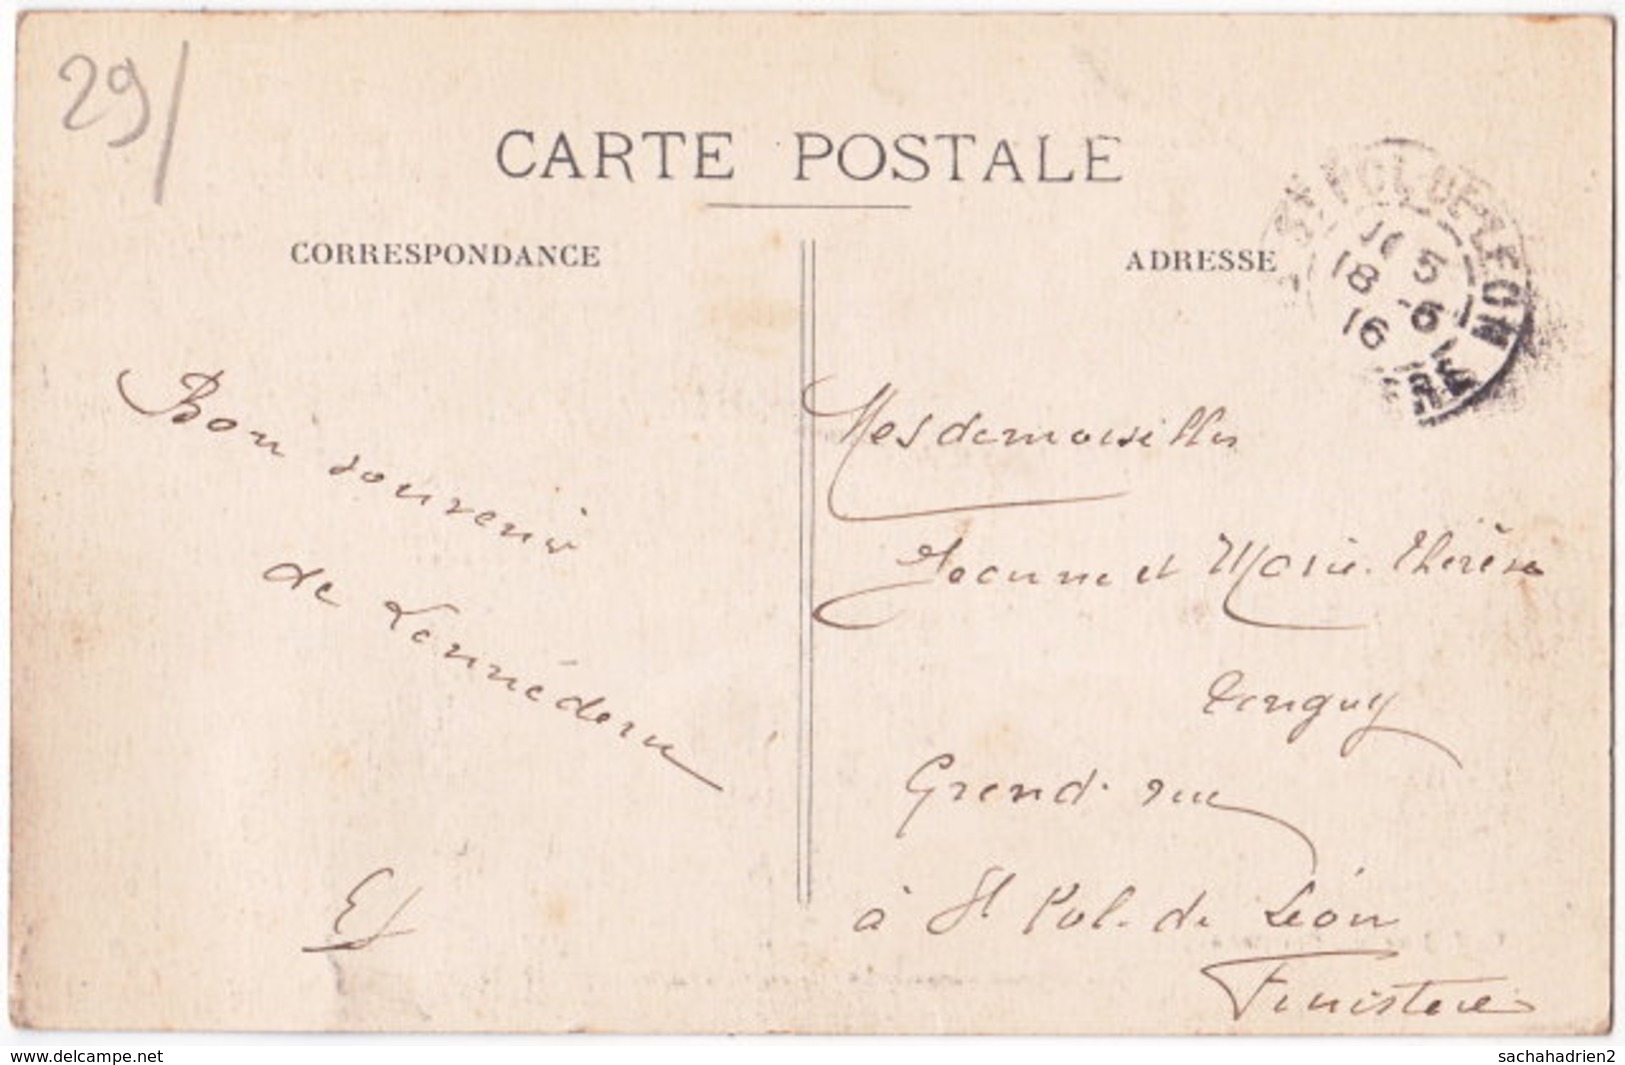 29/
CARTE POSTALE
CORRESPONDANCE
ADRESSE
ST POL-DE-LEON
5
18 - 6
16
Bon souvenir
de Lennédern
EJ
Mesdemoiselles
Jeanne et Marie-Thérèse
Tanguy
Grand-rue
à St Pol-de Léon
Finistère
www.delcampe.net
sachahadrien2